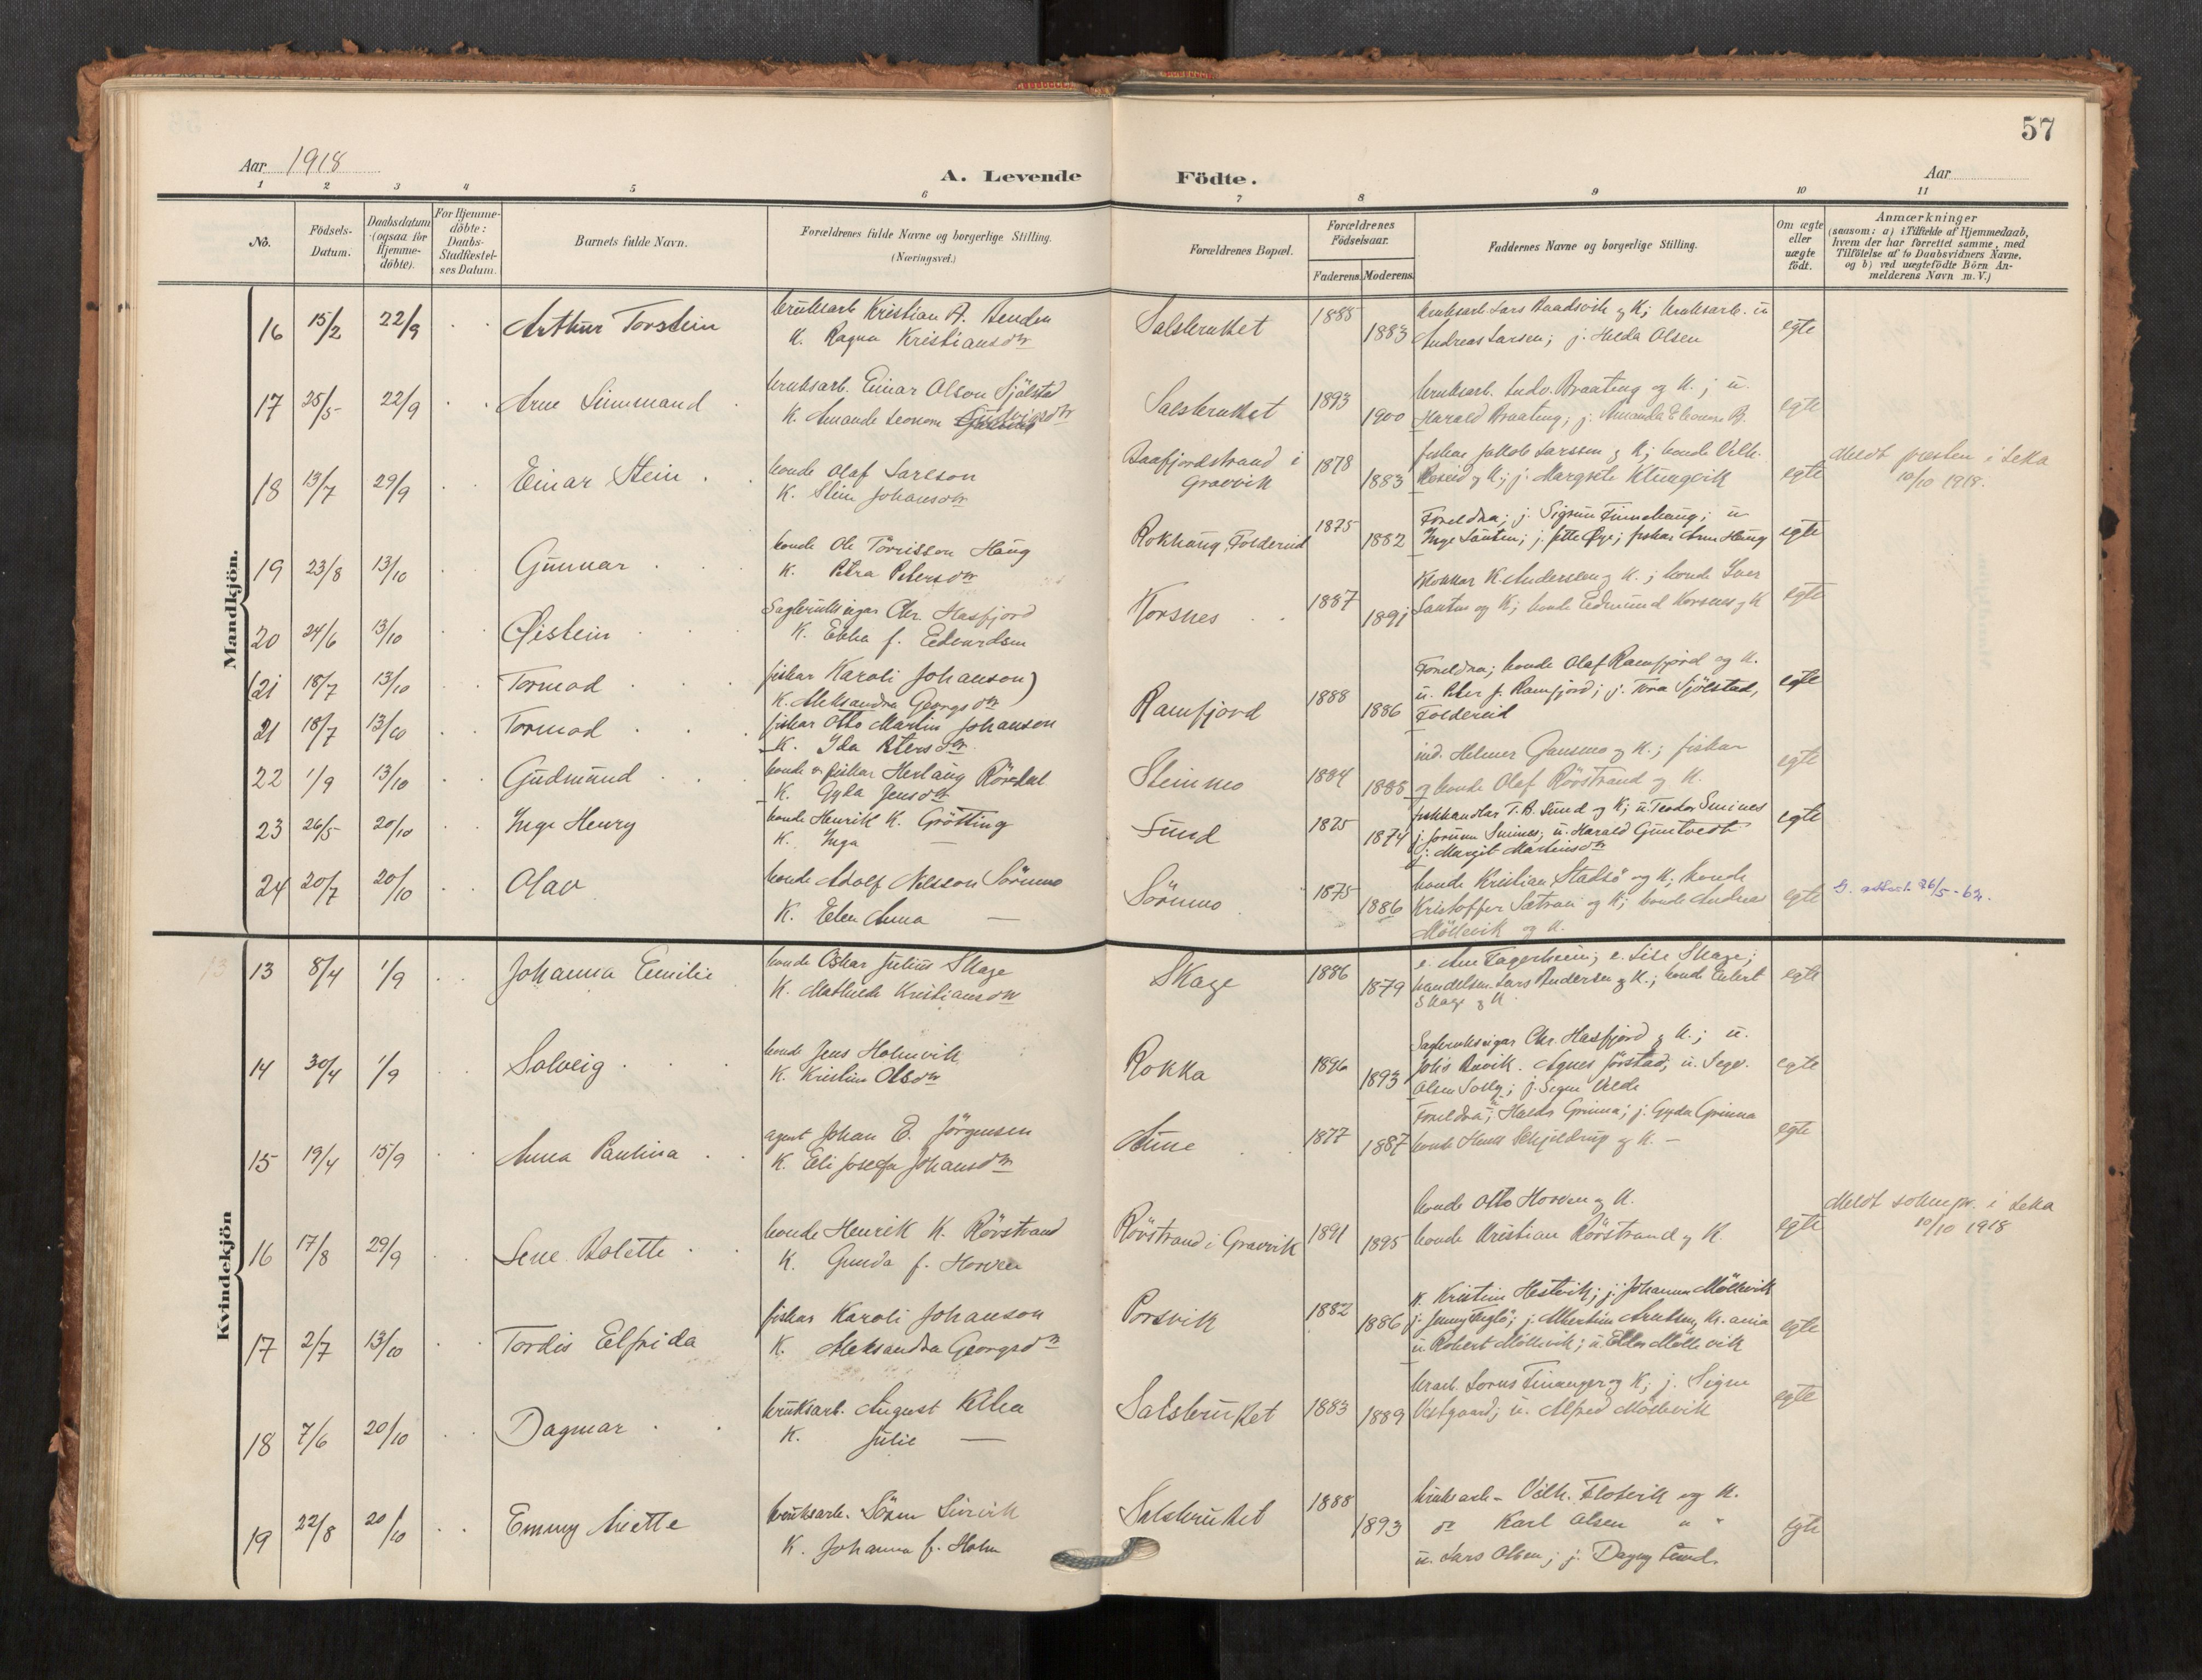 57
Aar 1918
A. Levende Födte.
Aar
1 2 3 4 5 6 7 8 9 10 11
No.
Födsels-Datum.
Daabsdatum (ogsaa for Hjemme-döbte).
For Hjemme-döbte: Daabs-Stadfæstel-ses Datum.
Barnets fulde Navn.
Forældrenes fulde Navne og borgerlige Stilling.
(Næringsvei.)
Forældrenes Bopæl.
Forældrenes Födselsaar.
Faderens. Moderens.
Faddernes Navne og borgerlige Stilling.
Om ægte eller uægte födt.
Anmærkninger
(saasom: a) i Tilfælde af Hjemmedaab, hvem der har forrettet samme, med Tilföielse af to Daabsvidners Navne, og b) ved uægtefödte Börn An-melderens Navn m. V.)
Mandkjön.
16 15/2 22/9 Arthur Torstein
bruksarb Kristian A.
K. Ragna Kristiansdtr
Salsbruket 1888 1883
bruksarb. Lars Raadsvik og K; bruksarb. u
Andreas Larsen; j. Hilda Olsen
egte
17 25/5 22/9 Arne
bruksarb. Einar Olson Sjölstad
K. Amanda
Salsbruket 1893 1900
bruksarb. Ludv. Braateng og K.; u.
Harald Braateng; j. Amanda Eleonore B.
egte
18 13/7 29/9 Einar Stein
bonde Olaf Larsson
K. Johansdtr
i Gravvik 1878 1883
fisker Jakob Larssen og K; bonde Vilh.
og K; j. Margrete
egte
Meldt presten i Leka
10/10 1918.
19 23/8 13/10 Gunnar
bonde Ole Törrisson Haug
K. Petra Petersdtr
Rokhaug, Foldereid 1875 1882
Foreldra; j. Sigrun Finnehaug; u
Inge j. Jette Øye; fisker Arne Haug
egte
20 24/6 13/10 Øistein
Sagbrukseigar Chr. Hasfjord
K. Ebba f. Edvardsen
Korsnes 1887 1891
Klokkar K. Andersen og K.; bonde Iver
og K; bonde Edmund Korsnes og K
egte
(21 18/7 13/10 Tormod
fiskar Karoli Johanson)
K. Aleksandra Georgsdtr
21 18/7 13/10 Tormod
fiskar Otto Martin Johanson
K. Ida Petersdtr
Ramfjord 1888 1886
Foreldra; bonde Olaf Ramfjord og K.
u. Peter J. Ramfjord; j. Tora Sjölstad,
Foldereid
egte
22 1/9 13/10 Gudmund
bonde o. fiskar Herlaug Rördal
K. Gyda Jensdtr
Steinmo 1884 1888
ind. Helmer Gansmo og K.; fiskar
og bonde Olaf Rörstrand og K.
egte
23 26/5 20/10 Inge Henry
bonde Henrik K. Grötting
K. Inga —
Sund 1875 1874
fiskhandlar T. B. Sund og K; u. Teodor Smines
j. Jorunn Smines; u. Harald
j. Margit Martinsdtr
egte
24 20/7 20/10 Olav
bonde Adolf Nilsson Sörmo
K. Elen Anna —
Sörmo 1875 1886
bonde Kristian Stadsö og K; bonde
Kristoffer Setran og K; bonde Andreas
Möllevik og K.
egte
26/5-62.
Kvindekjön
13
13 8/4 1/9 Johanna Emilie
bonde Oskar Julius Skage
K. Mathilde Kristiansdtr
Skage 1886 1879
e. Ane Fagerheim; e. Lise Skage;
handelsm. Lars Andersen og K.; bonde Enbert
Skage og K.
egte
14 30/4 1/9 Solveig
bonde Jens Holmvik
K. Kristine Olsdtr
Rokka 1896 1893
Sagbrukseigar Chr. Hasfjord og K.; u.
Agnes Jörstad; u.
Olsen j. Signe Velde
egte
15 19/4 15/9 Anna Paulina
agent Johan E. Jörgensen
K. Eli Josefa Johansdtr
Aune 1877 1887
Foreldra; Grinna; j. Gyda Grinna
bonde Schjeldrup og K. —
egte
16 17/8 29/9 Lene Bolette
bonde Henrik K. Rörstrand
K. Gunda f. Horven
Rörstrand i Gravvik 1891 1895
bonde Otto Horven og K.
bonde Kristian Rörstrand og K.
egte
Meldt soknepr. i Leka
10/10 1918
17 2/7 13/10 Tordis Elfrida
fiskar Karoli Johanson
K. Aleksandra Georgsdtr
Porsvik 1882 1886
K. Kristine Hestvik; j. Johanna Möllevik
j. Jenny j. Albertine Arntsen, Kr.ania
u. Robert Möllevik; u. Möllevik
egte
18 7/6 20/10 Dagmar
bruksarb. August
K. Julie —
Salsbruket 1883 1889
brarb. Lorns Finanger og K; j. Signe
Vestgaard; u. Alfred Möllevik
egte
19 22/8 20/10 Emmy Anette
bruksarb. Sören
K. Johanna f. Holm
Salsbruket 1888 1893
bruksarb. Vilh. Flotvik og K.
do Karl Olsen " "
u. Lars Olsen; j. Dagny Sund.
egte